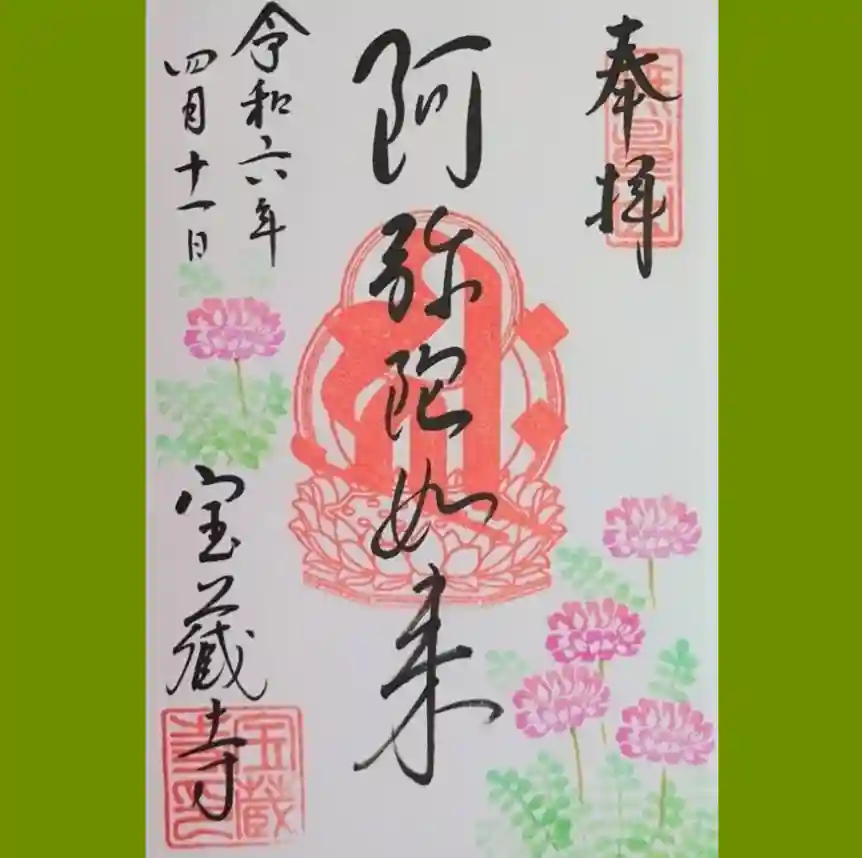 奉拝
阿弥陀如来
令和六年
四月十一日
宝蔵寺
宝蔵寺印